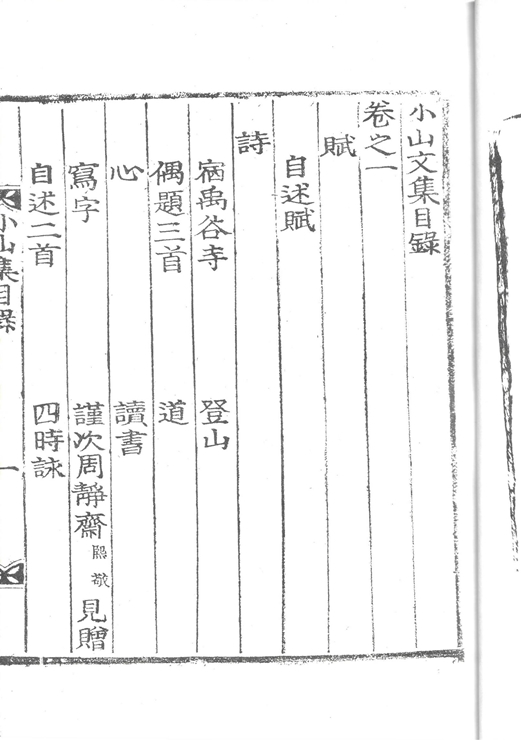 小山文集目錄
卷之一
賦
自述賦
詩
宿禹谷寺 登山
偶題三首 道
心 讀書
寫字 謹次周靜齋熙敬見贈
自述二首 四時詠
小山集目錄 一